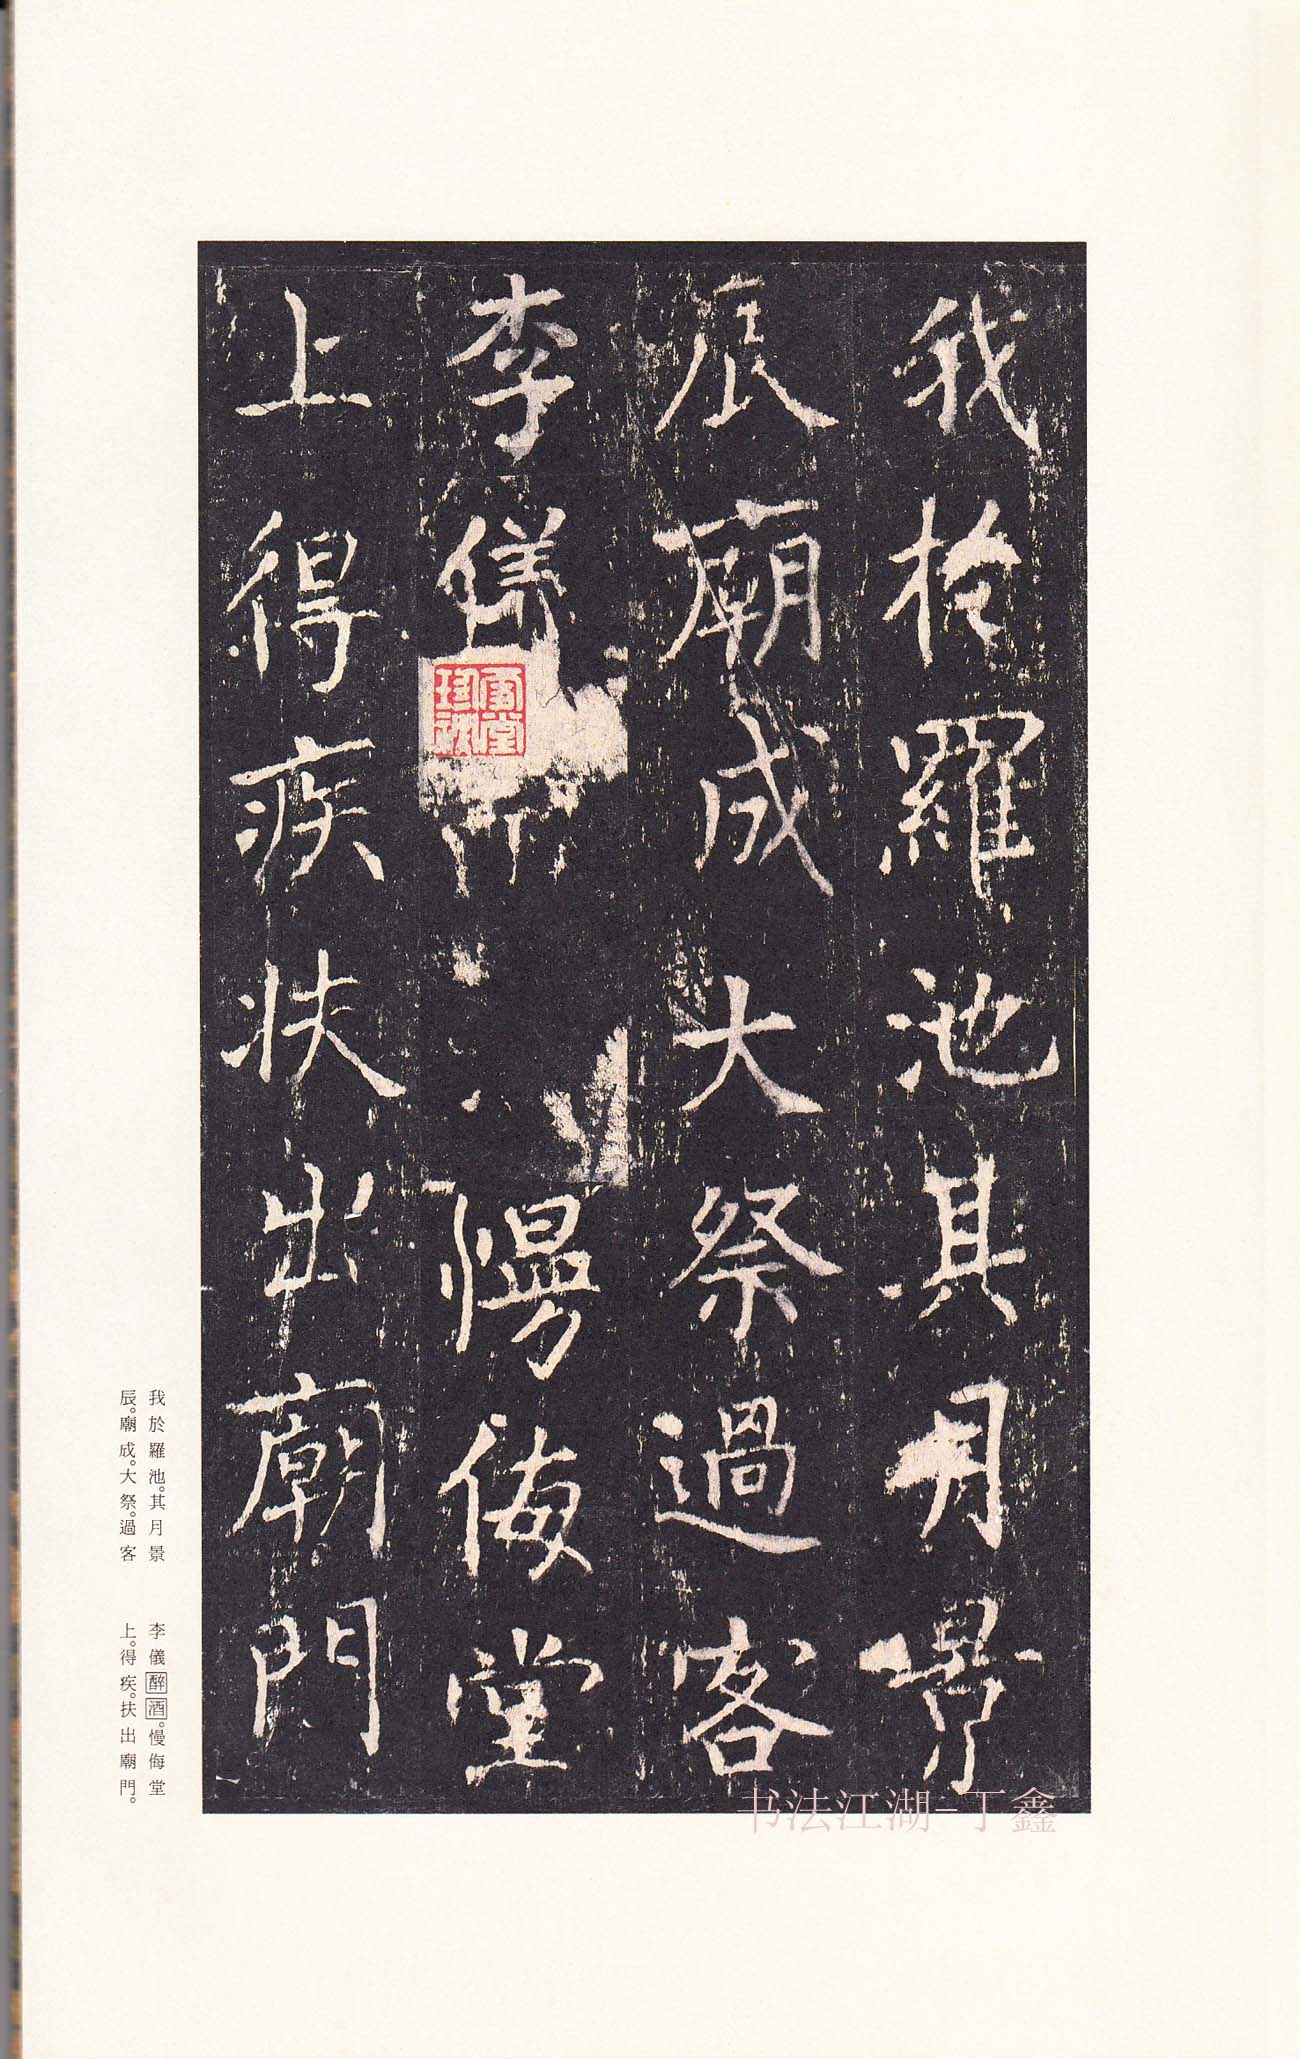 我於羅池其月景
辰廟成大祭過客
李儀慢侮堂
上得疾扶出廟門
雪堂珍秘
我於羅池。其月景
辰。廟成。大祭。過客
李儀醉酒。慢侮堂
上。得疾。扶出廟門。
书法江湖-丁鑫